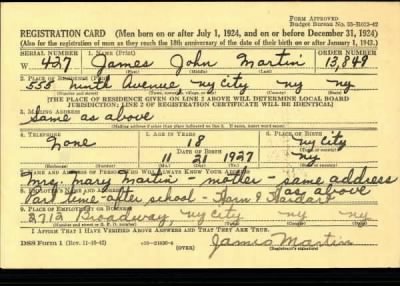 FORM APPROVED
Budget Bureau No. 33-R012-42
REGISTRATION CARD (Men born on or after July 1, 1924, and on or before December 31, 1924)
(Also for the registration of men as they reach the 18th anniversary of the date of their birth on or after January 1, 1943.)
SERIAL NUMBER 1. NAME (Print) ORDER NUMBER
W 427 James John Martin 13,849
(First) (Middle) (Last)
2. PLACE OF RESIDENCE (Print)
555 ninth Avenue ny city ny ny
[THE PLACE OF RESIDENCE GIVEN ON LINE 2 ABOVE WILL DETERMINE LOCAL BOARD
JURISDICTION; LINE 2 OF REGISTRATION CERTIFICATE WILL BE IDENTICAL]
3. MAILING ADDRESS
same as above
[Mailing address if other than place indicated on line 2. If same, insert word same]
4. TELEPHONE 5. AGE IN YEARS 6. PLACE OF BIRTH
none 18 ny city
DATE OF BIRTH
11 21 1927 ny
(Exchange) (Number) (Mo.) (Day) (Yr.) (State or country)
7. NAME AND ADDRESS OF PERSON WHO WILL ALWAYS KNOW YOUR ADDRESS
Mrs. Mary Martin - mother - same address
as above
8. EMPLOYER'S NAME AND ADDRESS
Part time-after school - Horn & Hardart
9. PLACE OF EMPLOYMENT OR BUSINESS
2712 Broadway, ny city ny ny
I AFFIRM THAT I HAVE VERIFIED ABOVE ANSWERS AND THAT THEY ARE TRUE.
DSS Form 1 (Rev. 11-16-42) James Martin